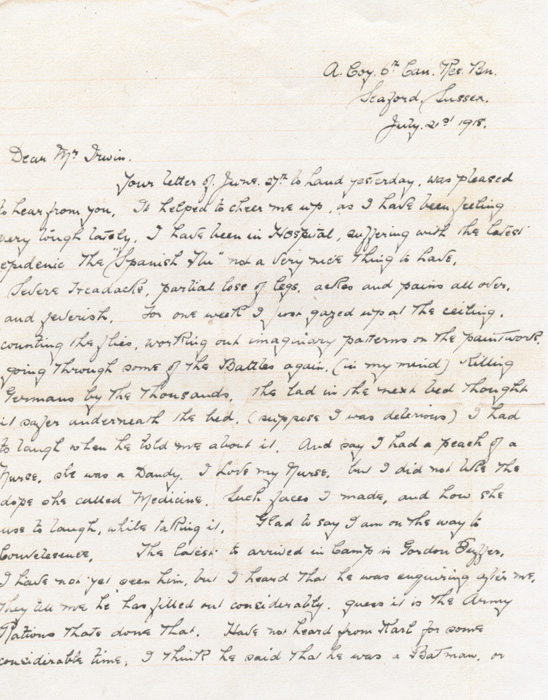 A. Coy. 6th Can. Res. Bn.
Seaford, Sussex.
July. 21st 1918.
Dear Mr Irwin.
Your letter of June. 27th to hand yesterday, was pleased
to hear from you, It helped to cheer me up, as I have been feeling
very tough lately. I have been in Hospital, suffering with the latest
epedenic the "Spanish Flu" not a very nice thing to have,
Severe Headache, partial lose of legs, aches and pains all over,
and feverish. For one week I just gazed up at the ceiling,
counting the flies, working out imaginary patterns on the paintwork,
going through some of the Battles again, (in my mind) Killing
Germans by the Thousands, the lad in the next bed thought
it safer underneath the bed, (suppose I was delerious) I had
to laugh when he told me about it. And say I had a peach of a
Nurse, she was a Dandy. I love my Nurse, but I did not like the
dope she called Medicine. Such faces I made, and how she
use to laugh, while taking it. Glad to say I am on the way to
Convelesence. The latest to arrived in Camp is Gordon
I have not yet seen him, but I heard that he was enquiring after me,
they tell me he has filled out considerably. guess it is the Army
Rations thats done that. Have not heard from Karl for some
considerable time, I think he said that he was a Batman, or